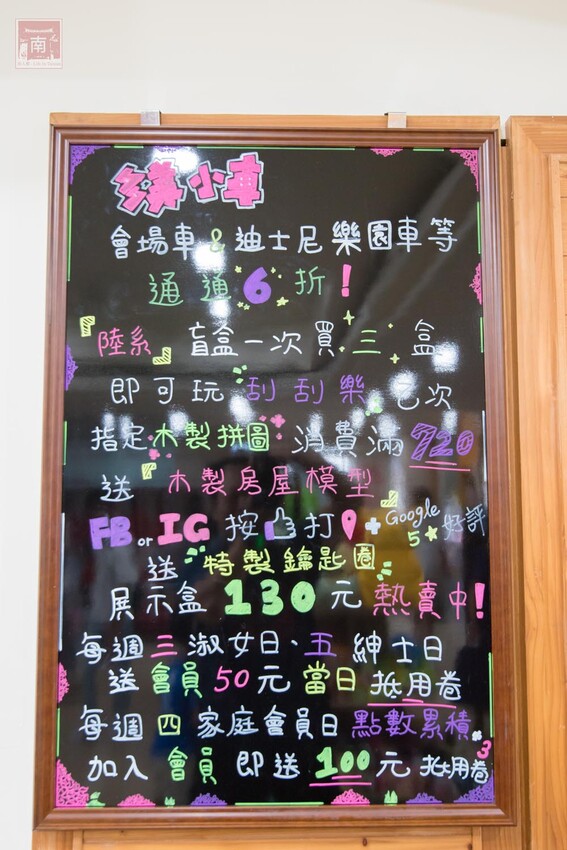 南
多美小車
會場車&迪士尼樂園車等
通通6折!
『陸系』盲盒一次買三盒
即可玩刮刮樂乙次
指定木製拼圖消費滿720
送『木製房屋模型』
FB or IG 按👍打📍+Google 5★好評
送特製鑰匙圈
展示盒130元熱賣中!
每週三淑女日、五紳士日
送會員50元當日抵用卷
每週四家庭會員日點數累積*3
加入會員即送100元抵用卷